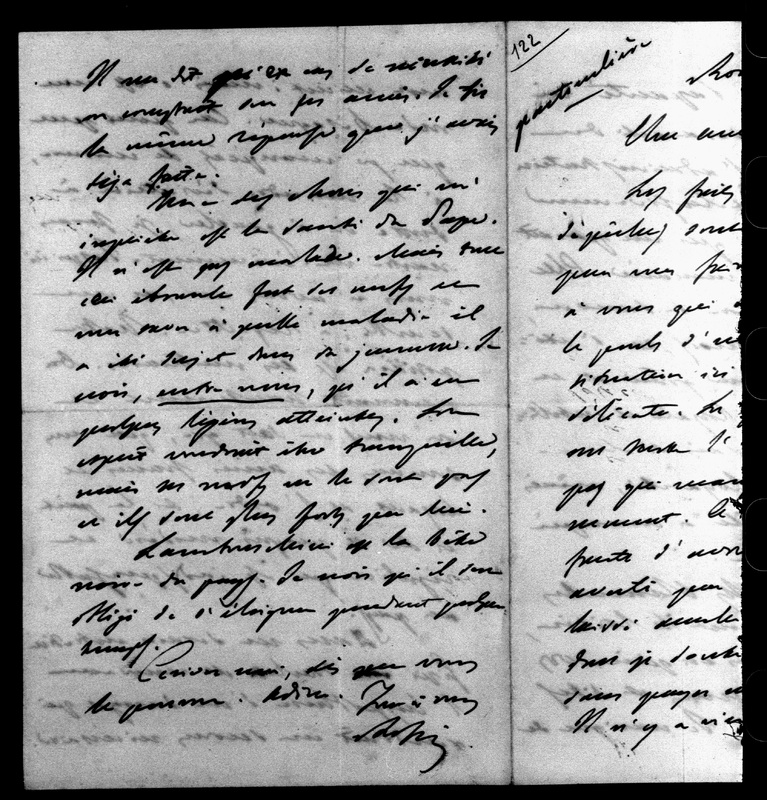 Il me dit qu'en cas de nécessité
on comptait sur ses amis. Je fis
la même réponse que j'avais
déja faite.
Une des choses qui m'
inquiète est la santé du Pape.
Il n'est pas malade. Mais tout
ceci ébranle fort ses nerfs et
vous savez à quelle maladie il
a été sujet dans sa jeunesse. Je
crois, entre nous, qu'il a eu
quelques légères atteintes. Son
esprit voudrait être tranquille,
mais ses nerfs ne le sont pas
et ils sont plus forts que lui.
Lambruschini est la bête
noire du pays. Je crois qu'il sera
obligé de s'éloigner pendant quelque
temps.
Ecrivez moi, dès que vous
le pourrez. Adieu. Tout à vous
Rossi
122
particulière
Une
Les faits
dépêches sont
pour
à vous qui
le poids d'
situation ici
délicate.
pas qui
moment.
d'
averti
laissé
dont je
sans
Il n'y a rien